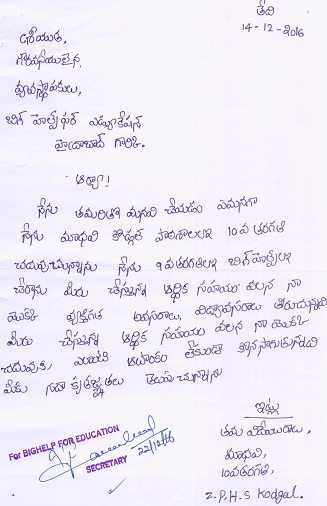 తేది
14-12-2016
శ్రీయుత,
గౌరవనీయులైన,
వ్యవస్థాపకులు,
బిగ్ హెల్ప్ ఫర్ ఎడ్యుకేషన్
హైదరాబాద్ గారికి.
ఆర్యా!
నేను తమరితో మనవి చేయడం ఏమనగా
నేను మాధవి కొడ్గల్ పాఠశాలలో 10వ తరగతి
చదువుచున్నాను నేను 9వ తరగతిలో బిగ్ హెల్ప్ లో
చేరాను మీరు చేస్తున్న ఆర్థిక సహాయం వలన నా
యొక్క వ్యక్తిగత అవసరాలు, విద్యావసరాలు తీరుచున్నవి
మీరు చేస్తున్న ఆర్థిక సహాయం వలన నా యొక్క
చదువుకు ఎలాంటి ఆటంకం లేకుండా కొనసాగుతున్నది
మీకు సదా కృతజ్ఞతలు తెలుపుచున్నాను
ఇట్లు
తమ విధేయురాలు,
మాధవి,
10వ తరగతి,
Z.P.H.S Kodgal.
For BIGHELP FOR EDUCATION
22/12/16
SECRETARY